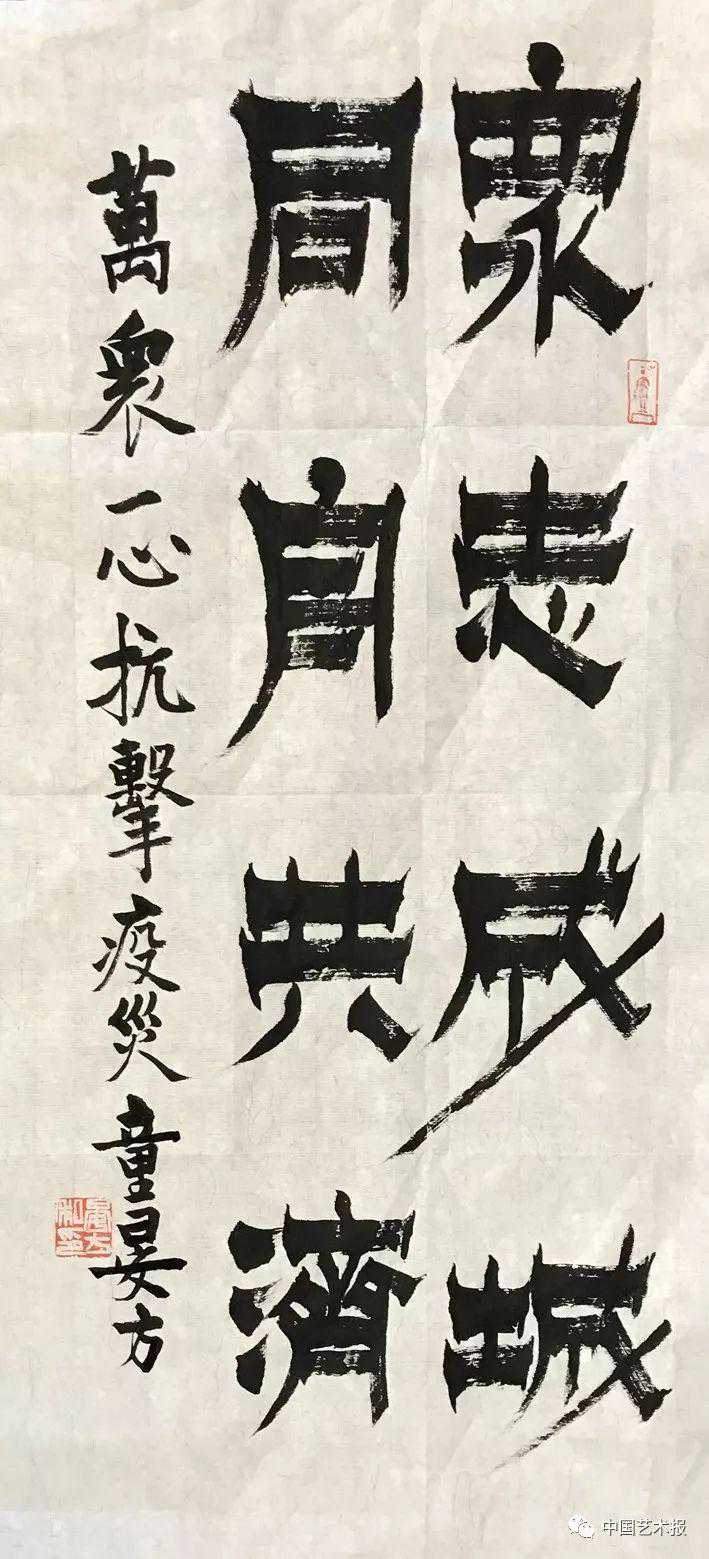 衆志成城
同舟共濟
萬衆一心抗擊疫災童晏方
晏方私印
中国艺术报